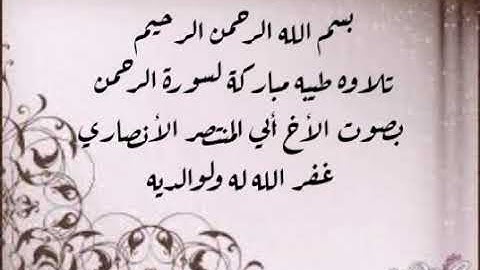 بسم الله الرحمن الرحيم
تلاوه طيبه مباركة لسورة الرحمن
بصوت الأخ ألي المنتصر الأنصاري
غفر الله له ولوالديه